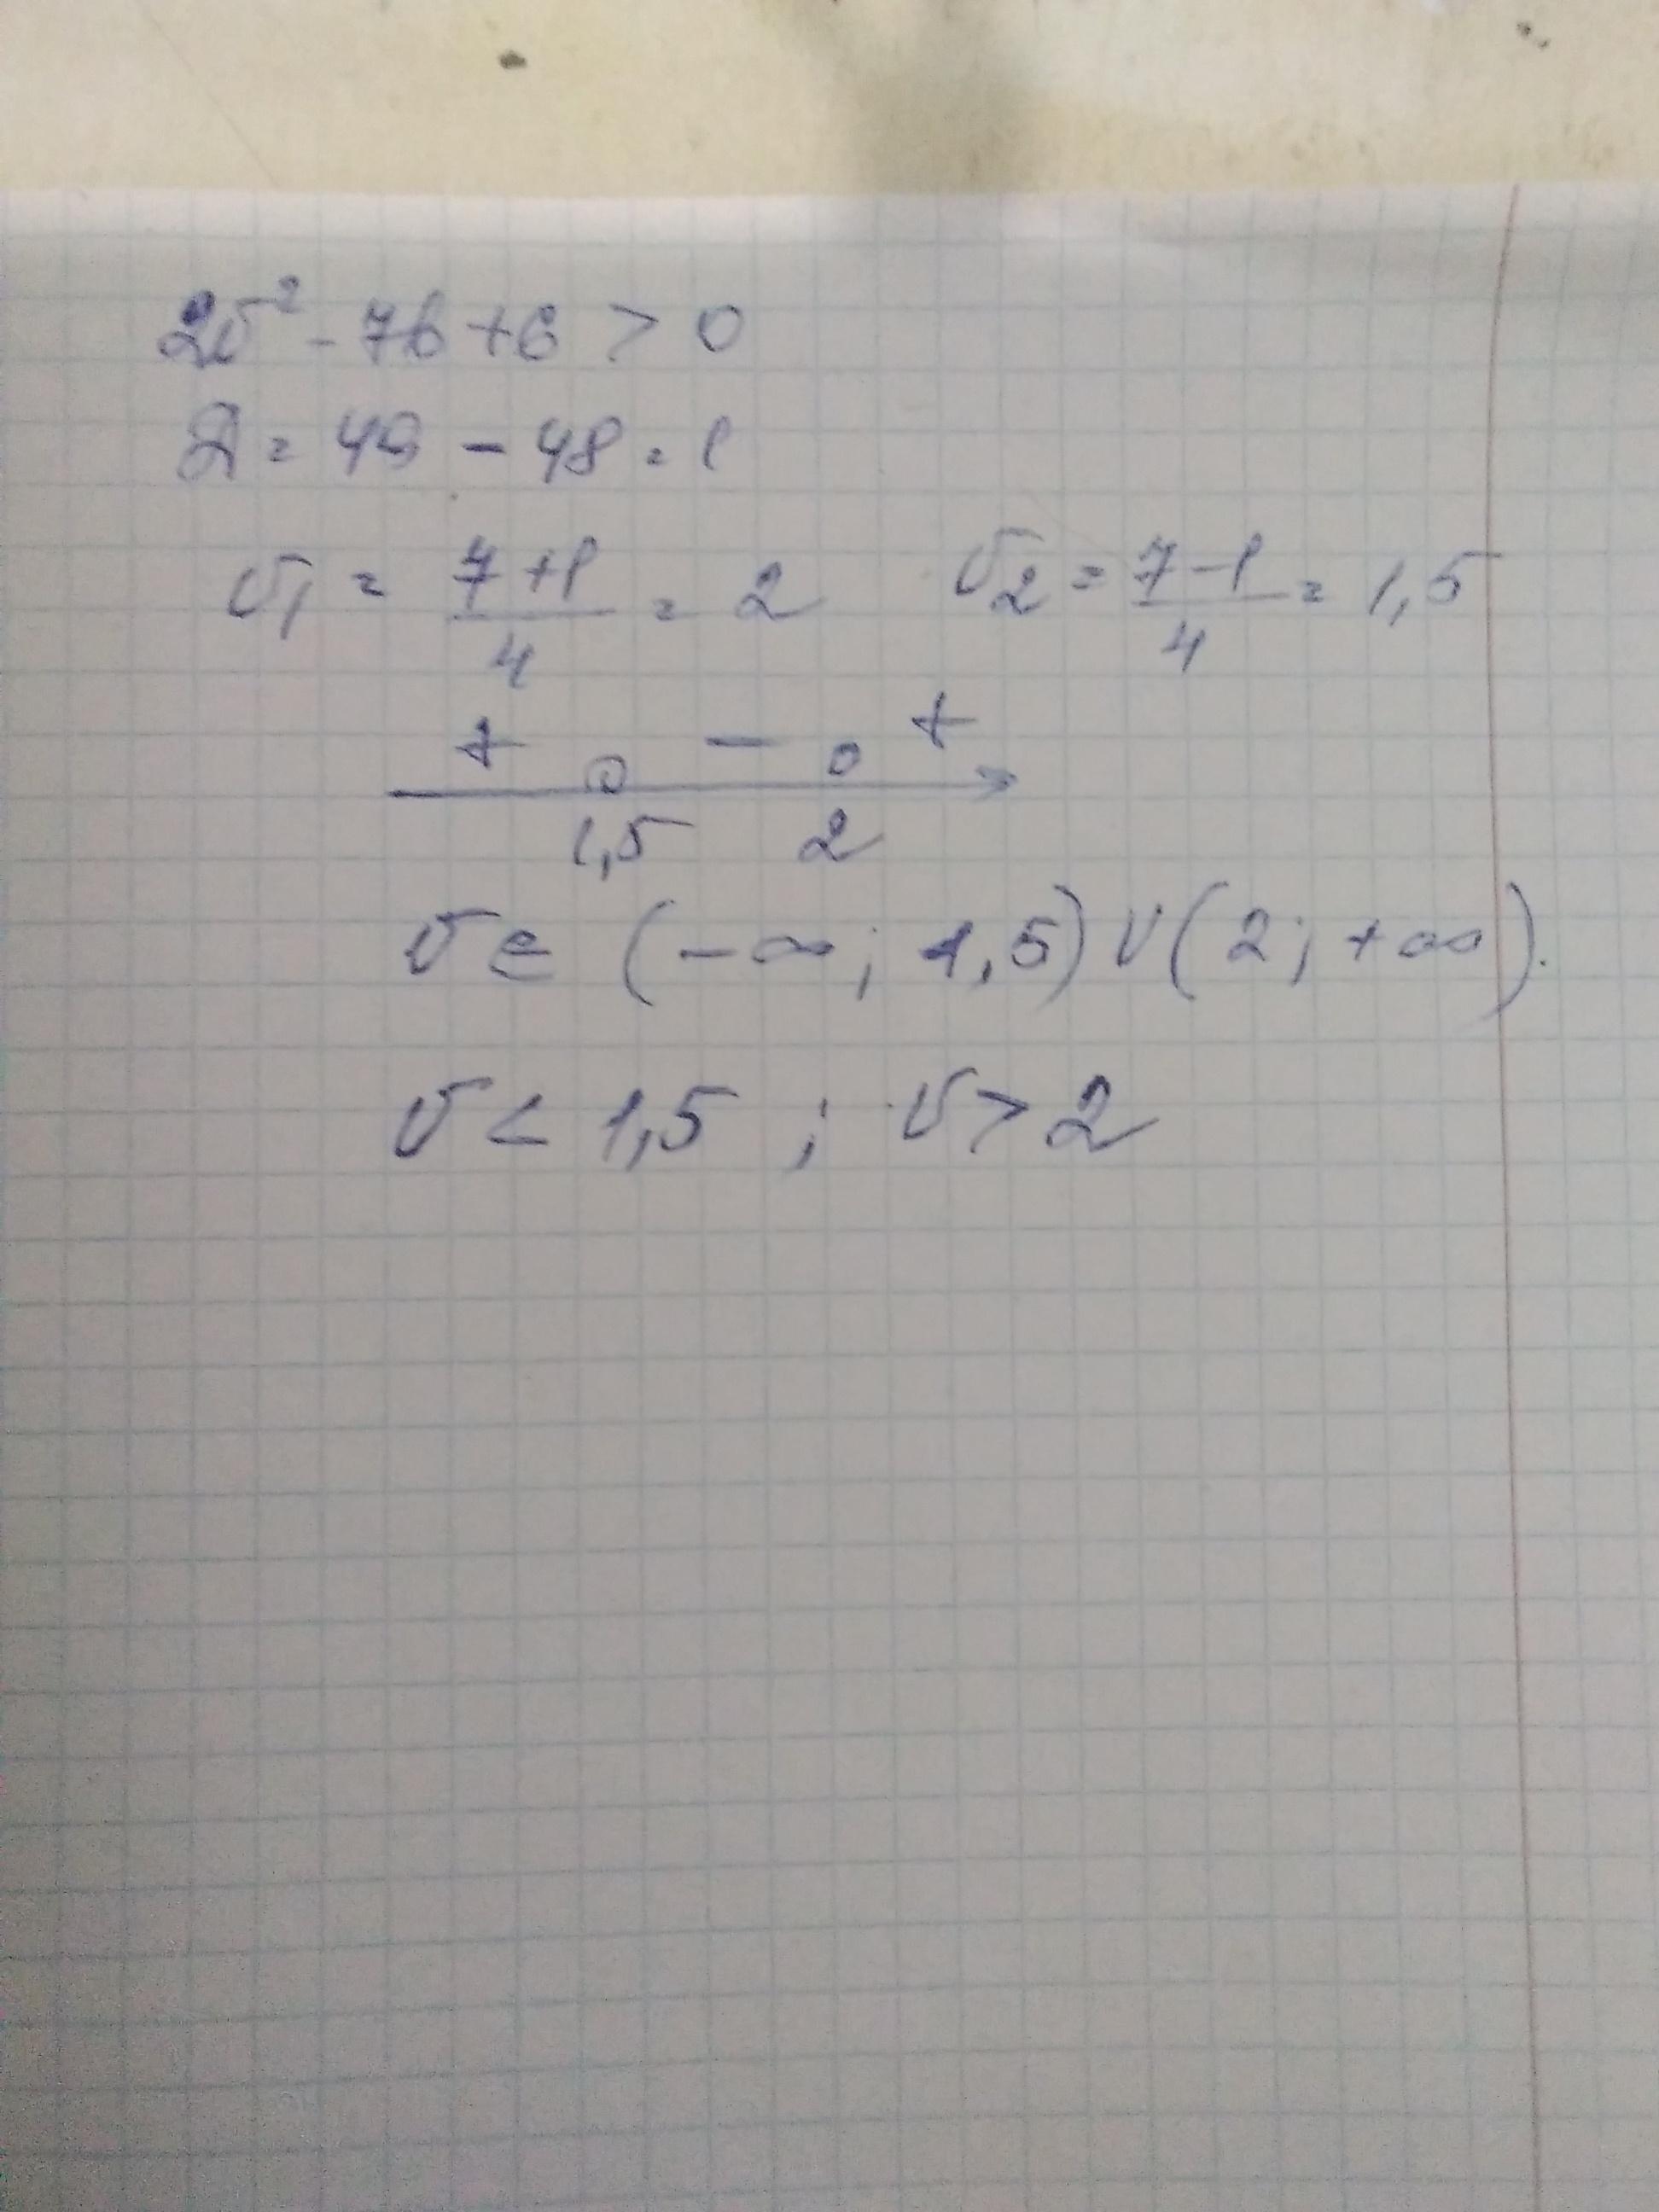 2v² - 7v + 6 > 0
D = 49 - 48 = 1
v₁ = (7+1)/4 = 2    v₂ = (7-1)/4 = 1,5
+ - +
1,5 2
v ∈ (-∞; 1,5) ∪ (2; +∞).
v < 1,5 ; v > 2